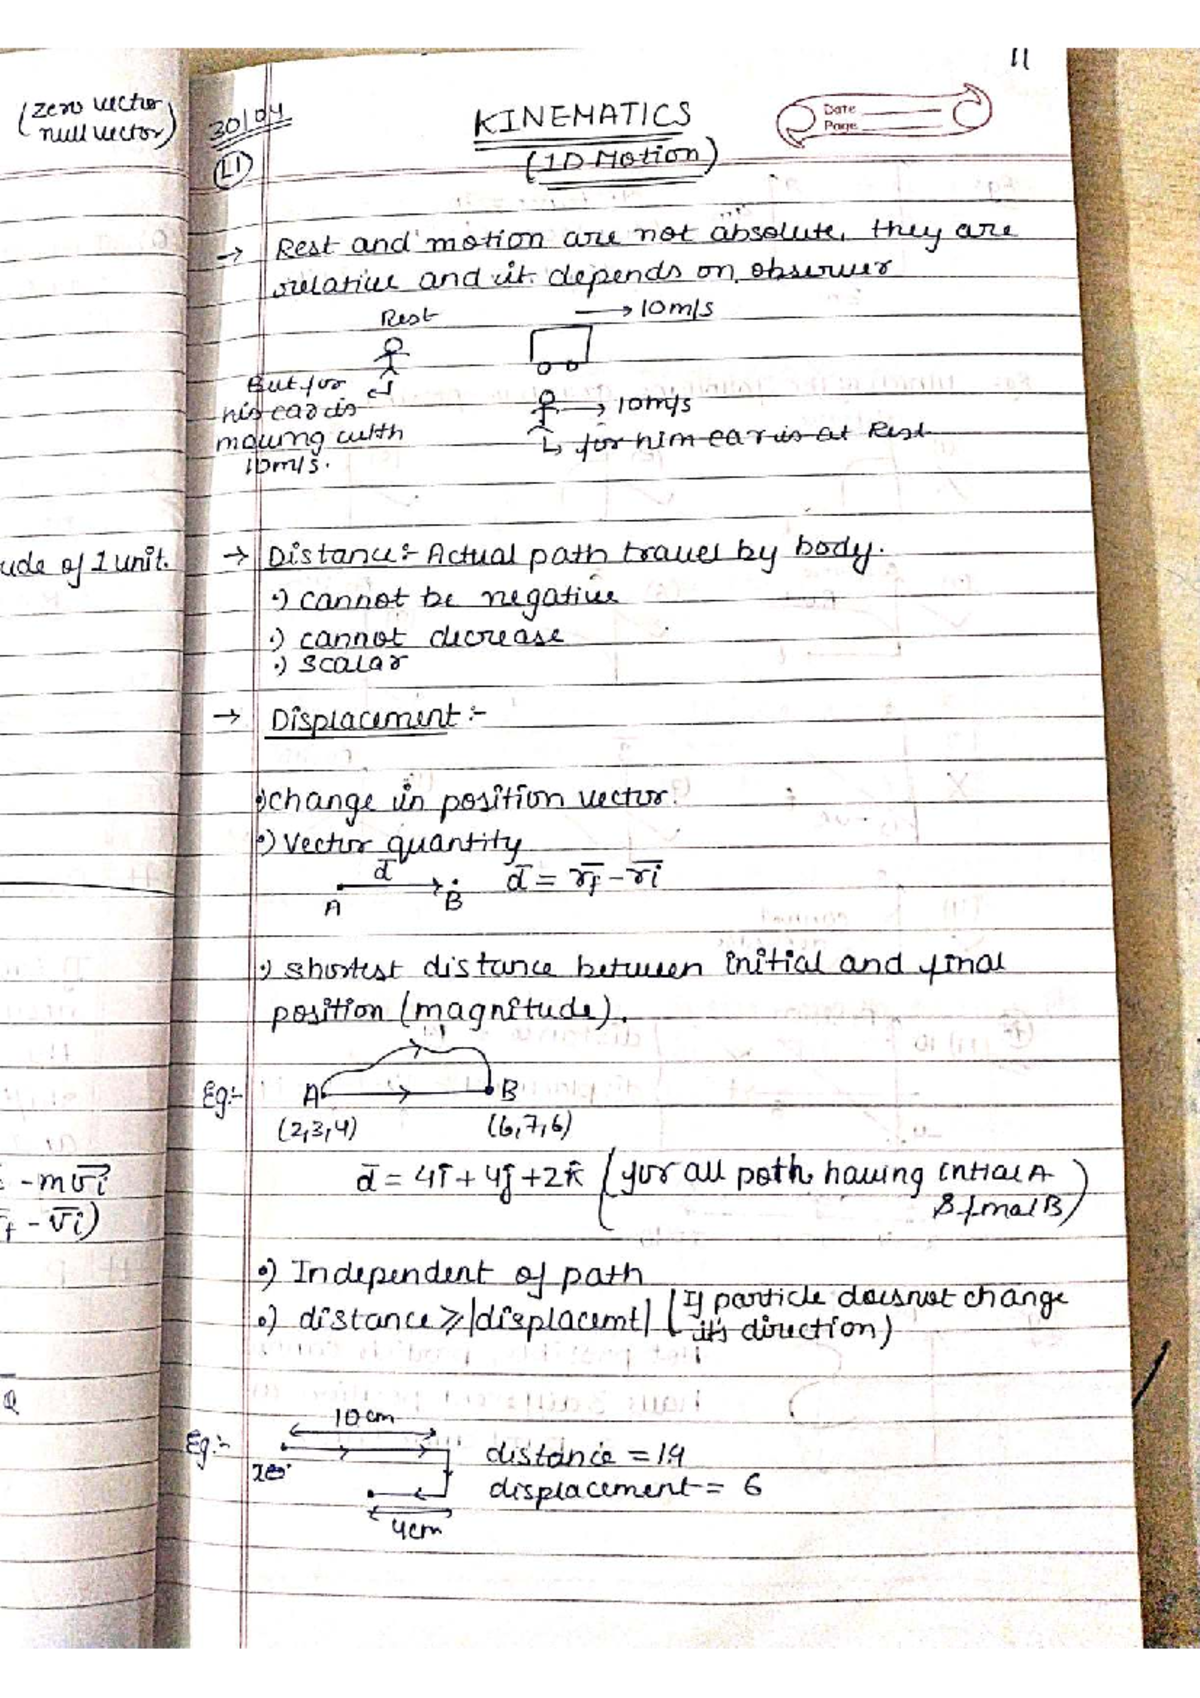 11
(zero vector
null vector)
30/04
L1
KINEMATICS
(1D Motion)
Date
Page
→ Rest and motion are not absolute, they are
relative and it depends on observer
Rest
→ 10m/s
But for
his car is
moving with
10m/s.
→ 10m/s
↳ for him car is at Rest
ude of 1 unit.
→ Distance:- Actual path travel by body.
•) cannot be negative
•) cannot decrease
•) scalar
→ Displacement:-
•) change in position vector
•) Vector quantity
d̄
A B
d̄ = r̄f - r̄i
•) shortest distance between initial and final
position (magnitude).
Eg:- A B
(2,3,4) (6,7,6)
d̄ = 4î + 4ĵ + 2k̂ (for all path having initial A
& final B)
- mv̄i
- v̄i)
•) Independent of path
•) distance ≥ |displacemt| (If particle doesnot change
its direction)
Eg:-
10cm
distance = 14
displacement = 6
4cm